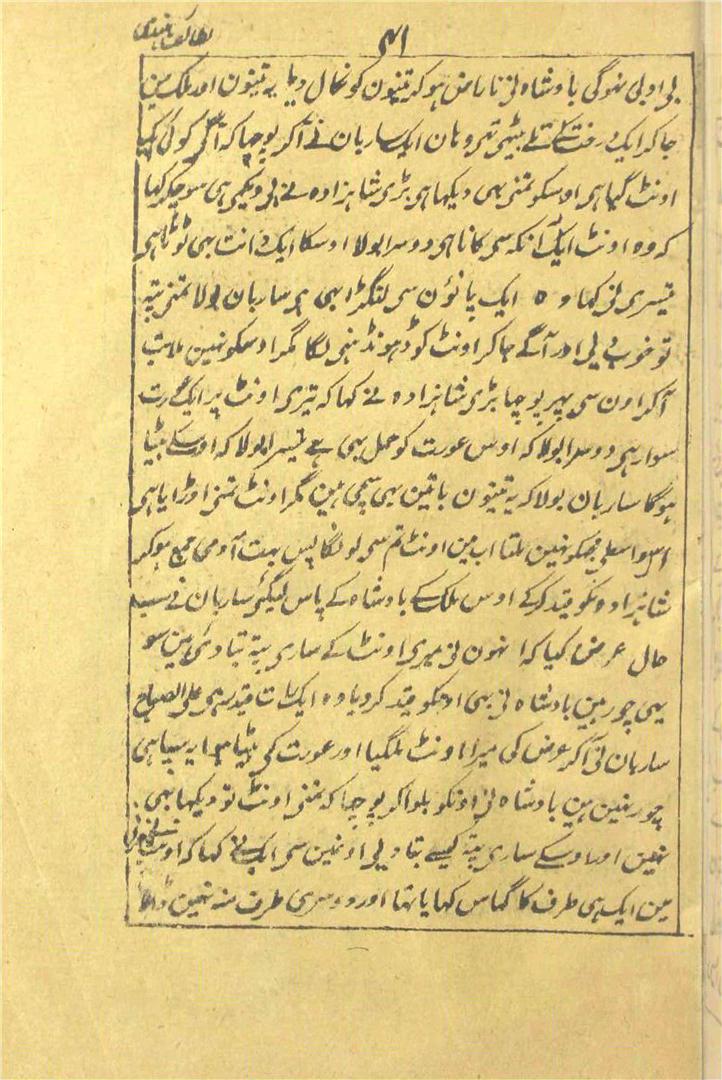 لطائف ہندی
۴۱
بی ادبی نہوگی بادشاہ نی ناراض ہوکر تینون کو نکال دیا یہ تینون اور ملک مین
جاکر ایک درخت کے تلے بیٹھی تہی وہان ایک ساربان نے آکر پوچہا کہ اگر کوئی
اونٹ گیا ہی اوسکو تمنی بہی دیکہا ہی بڑی شاہزادہ نے بی دیکہی ہی سوچکر کہا
کہ وہ اونٹ ایک آنکہ سی کانا ہی دوسرا بولا اوسکا ایک دانت بہی ٹوٹا ہی
تیسری نی کہا وہ ایک پانوُن سی لنگڑا بہی ہی ساربان بولا تمنی پتہ
تو خوب دی اور آگے جاکر اونٹ کو ڈہونڈہنی لگا مگر اوسکو نہین ملا تب
آکر اون سی پہر پوچہا بڑی شاہزادہ نے کہا کہ تیری اونٹ پر ایک عورت
سوار ہی دوسرا بولا کہ اوس عورت کو حمل بہی ہے تیسرا بولا کہ اوسکے بیٹا
ہوگا ساربان بولا کہ یہ تینون باتین بہی سچی ہین مگر اونٹ تمنی اوڑایا ہی
اسواسطی مجہکو نہین ملتا اب مین اونٹ تم سی لونگا پس بہت آدمی جمع ہوکر
شاہزادونکو قید کرکے اوس ملک کے بادشاہ کے پاس لیگئی ساربان نے سب
حال عرض کیا کہ انہون نی میری اونٹ کے ساری پتہ بتا دئی ہین سو
یہی چور ہین بادشاہ نی بہی اونکو قید کر دیا وہ ایک رات قید رہی علی الصباح
ساربان نی آکر عرض کی میرا اونٹ ملگیا اور عورت کی بیٹا ہوا یہ سپاہی
چور نہین ہین بادشاہ نی اونکو بلواکر پوچہا کہ تمنی اونٹ تو دیکہا بہی
نہین اور اوسکے ساری پتہ کیسے بتا دی اونمین سی ایک نے کہا کہ اونٹ نے
مین ایک ہی طرف کا گہاس کہایا تہا اور دوسری طرف منہ نہین ڈالا